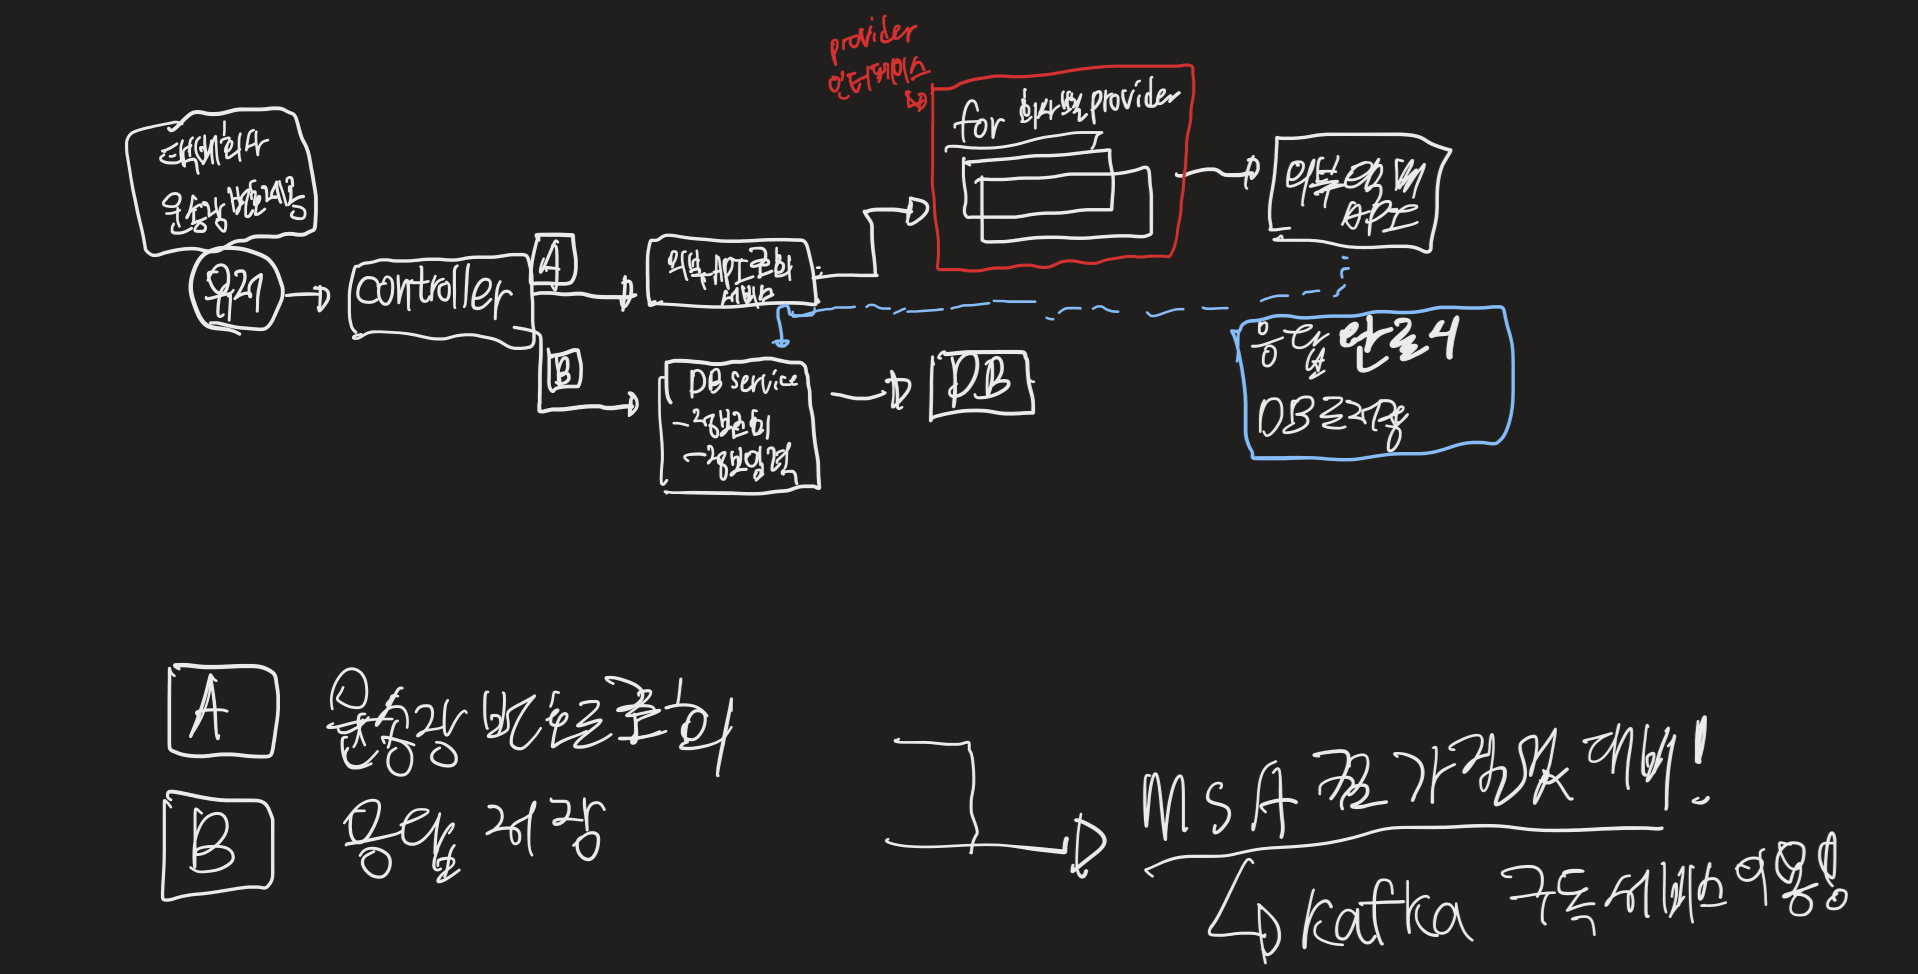 provider
인터페이스
for 회사별 provider
택배회사
운송장 번호제공
유저
controller
A
외부 API 조회
서비스
외부 택배
API
B
DB service
- 정보 조회
- 정보입력
DB
응답 완료시
DB로 저장
A
운송장 번호로 조회
B
응답 저장
MSA 로 가정 및 대비!
kafka 구독 서비스 이용